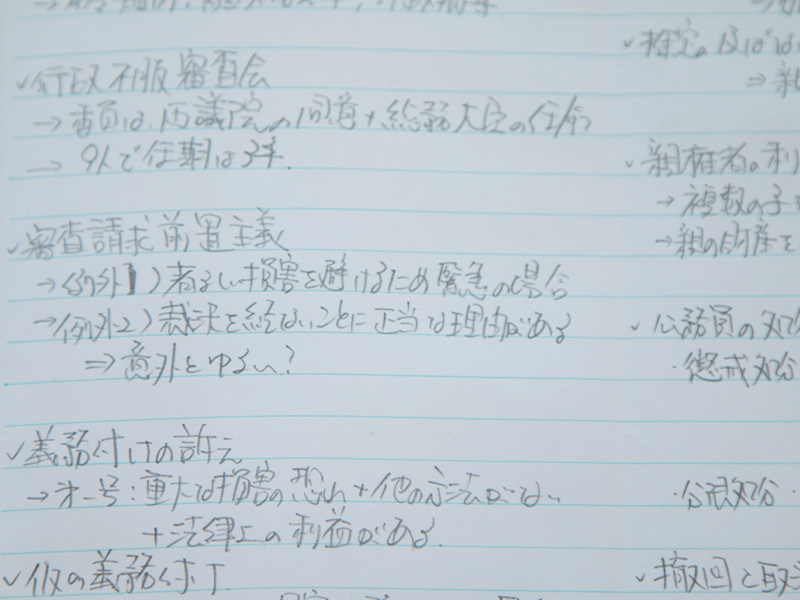 ✓行政不服審査会
→委員は、両議院の同意+総務大臣の任命
→ 9人で任期は3年.
✓審査請求前置主義
→例外1)著しい損害を避けるため緊急の場合
→例外2)裁決を経ないことに正当な理由がある
⇒意外とゆるい?
✓義務付けの訴え
→オ一号:重大な損害の恐れ+他の方法がない
+法律上の利益がある.
✓仮の義務付け
✓推定の及ばない
✓親権者の利
→複数の子
→親の財産を
✓公務員の処分
・懲戒処分
・分限処分・
✓撤回と取